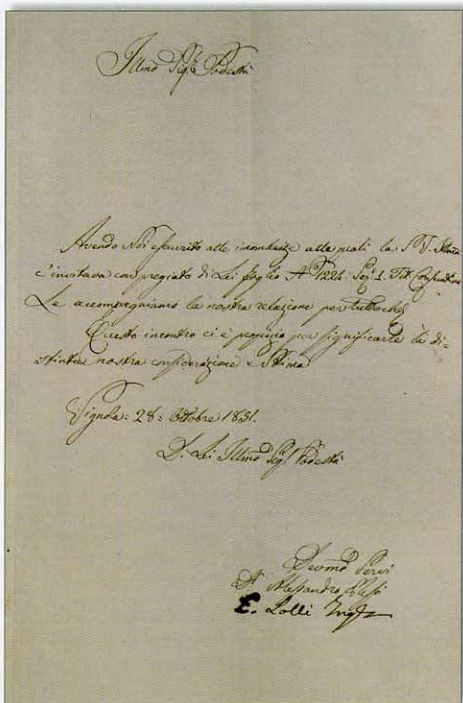 Illmo Sigr Podestà
Avendo Noi esaurito alle incombenze alle quali la S. V. Illma
c'invitava con pregiato di Lei foglio No 1224. Sez. 1. Tit.
Le accompagniamo la nostra relazione per
Questo incontro ci è propizio per significarle la di-
stinta nostra considerazione e Stima
Vignola = 28 = Ottobre 1851.
Di Lei Illmo Sigr Podestà
Devmi Servi
Dr Alessandro
E. Lolli Ingr